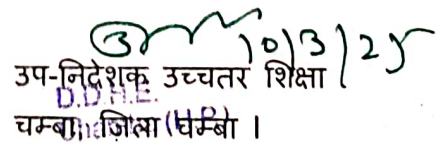 10/3/25
उप-निदेशक उच्चतर शिक्षा
D.D.H.E.
चम्बा, जिला चम्बा ।